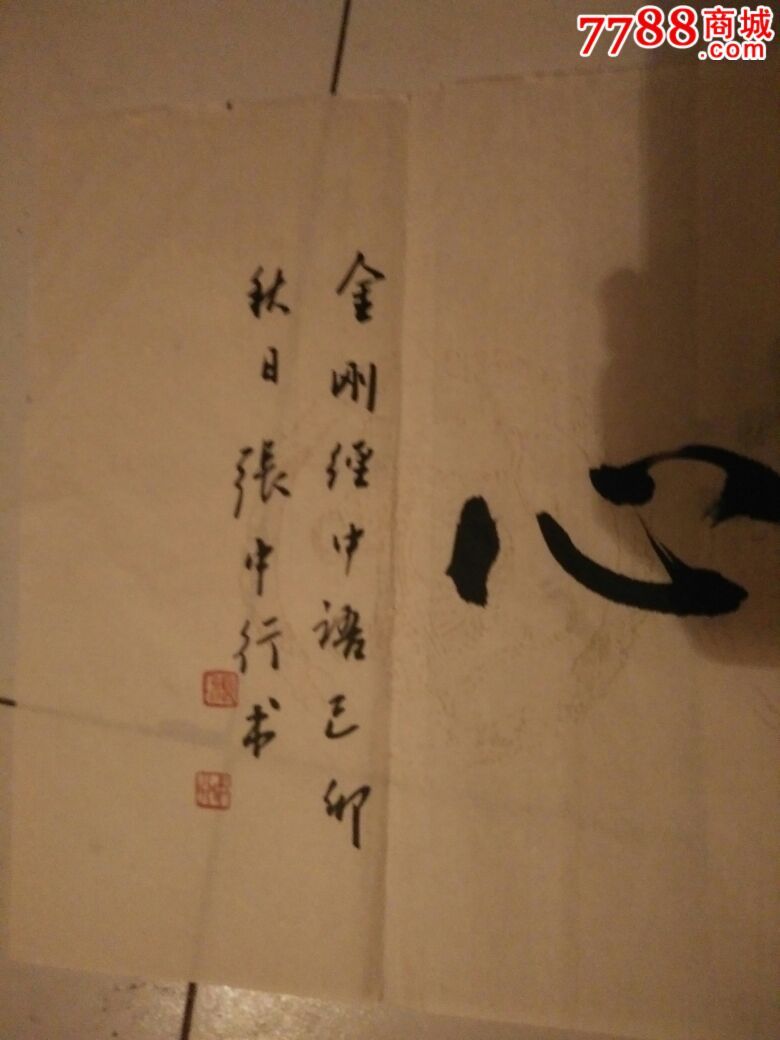 7788商城
.com
心
金剛經中語己卯
秋日張中行书